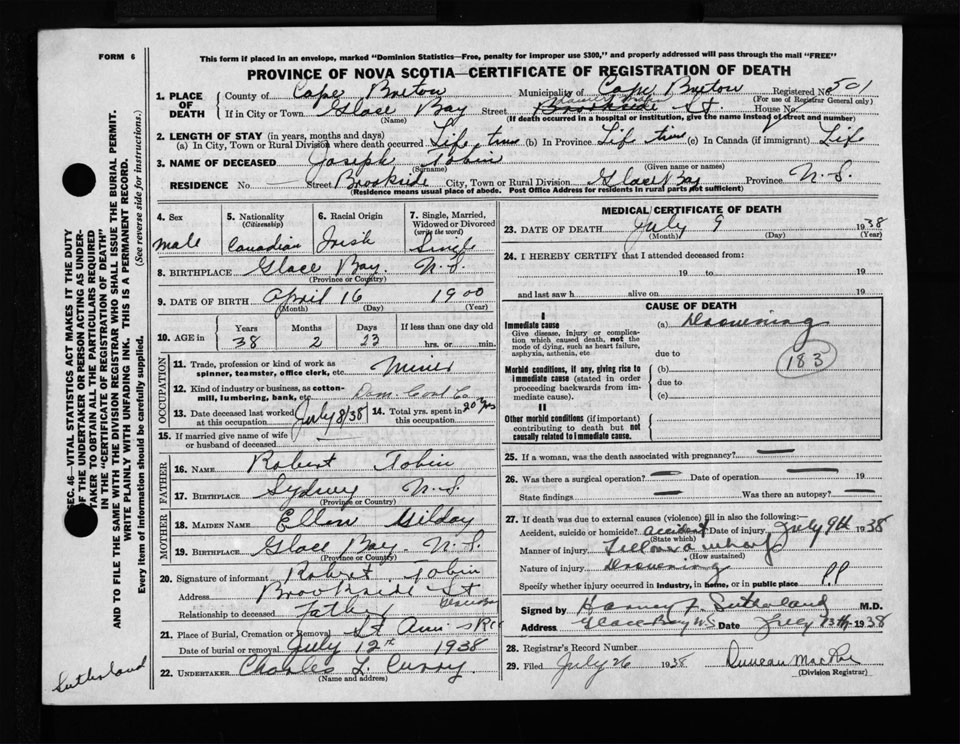 FORM 6
This form if placed in an envelope, marked "Dominion Statistics—Free, penalty for improper use $300," and properly addressed will pass through the mail "FREE"
PROVINCE OF NOVA SCOTIA—CERTIFICATE OF REGISTRATION OF DEATH
1. PLACE OF DEATH
County of Cape Breton Municipality of Cape Breton Registered No. 501
(For use of Registrar General only)
If in City or Town Glace Bay Street Brookside St. House No.
(Name) (If death occurred in a hospital or institution, give the name instead of street and number)
2. LENGTH OF STAY (in years, months and days)
(a) In City, Town or Rural Division where death occurred Life time (b) In Province Life time (c) In Canada (if immigrant) Life
3. NAME OF DECEASED Joseph Tobin
(Surname) (Given name or names)
RESIDENCE No. — Street Brookside City, Town or Rural Division Glace Bay Province N.S.
(Residence means usual place of abode. Post Office Address for residents in rural parts not sufficient)
4. Sex Male
5. Nationality (Citizenship) Canadian
6. Racial Origin Irish
7. Single, Married, Widowed or Divorced (write the word) Single
8. BIRTHPLACE Glace Bay. N.S.
(Province or Country)
9. DATE OF BIRTH April 16 1900
(Month) (Day) (Year)
10. AGE in Years 38 Months 2 Days 23 If less than one day old hrs. or min.
OCCUPATION
11. Trade, profession or kind of work as spinner, teamster, office clerk, etc. Miner
12. Kind of industry or business, as cotton-mill, lumbering, bank, etc. Dom. Coal Co
13. Date deceased last worked at this occupation July 8/38
14. Total yrs. spent in this occupation 20 yrs
15. If married give name of wife or husband of deceased —
FATHER
16. NAME Robert Tobin
17. BIRTHPLACE Sydney N.S.
(Province or Country)
MOTHER
18. MAIDEN NAME Ellen Gilday
19. BIRTHPLACE Glace Bay. N.S.
(Province or Country)
20. Signature of informant Robert Tobin
Address Brookside St
Relationship to deceased Father
21. Place of Burial, Cremation or Removal St Ann's
Date of burial or removal July 12th 1938
22. UNDERTAKER Charles L. Curry
(Name and address)
MEDICAL CERTIFICATE OF DEATH
23. DATE OF DEATH July 9 1938
(Month) (Day) (Year)
24. I HEREBY CERTIFY that I attended deceased from:
19 to 19
and last saw h alive on 19
CAUSE OF DEATH
I
Immediate cause
Give disease, injury or complication which caused death, not the mode of dying, such as heart failure, asphyxia, asthenia, etc
(a) Drowning
due to
183
Morbid conditions, if any, giving rise to immediate cause (stated in order proceeding backwards from immediate cause).
(b)
due to
(c)
II
Other morbid conditions (if important) contributing to death but not causally related to immediate cause.
25. If a woman, was the death associated with pregnancy? —
26. Was there a surgical operation? — Date of operation — 19
State findings — Was there an autopsy? —
27. If death was due to external causes (violence) fill in also the following:—
Accident, suicide or homicide? accident Date of injury July 9th 1938
(State which)
Manner of injury Fell over a wharf
(How sustained)
Nature of injury Drowning
Specify whether injury occurred in industry, in home, or in public place P.P
Signed by Harvey J. Sutherland M.D.
Address Glace Bay N.S Date July 13th 1938
28. Registrar's Record Number
29. Filed July 26 1938 Duncan MacRae
(Division Registrar)
SEC. 46—VITAL STATISTICS ACT MAKES IT THE DUTY
OF THE UNDERTAKER OR PERSON ACTING AS UNDER-
TAKER TO OBTAIN ALL THE PARTICULARS REQUIRED
IN THE "CERTIFICATE OF REGISTRATION OF DEATH"
AND TO FILE THE SAME WITH THE DIVISION REGISTRAR WHO SHALL ISSUE THE BURIAL PERMIT.
WRITE PLAINLY WITH UNFADING INK. THIS IS A PERMANENT RECORD.
Every item of information should be carefully supplied. (See reverse side for instructions.)
Sutherland